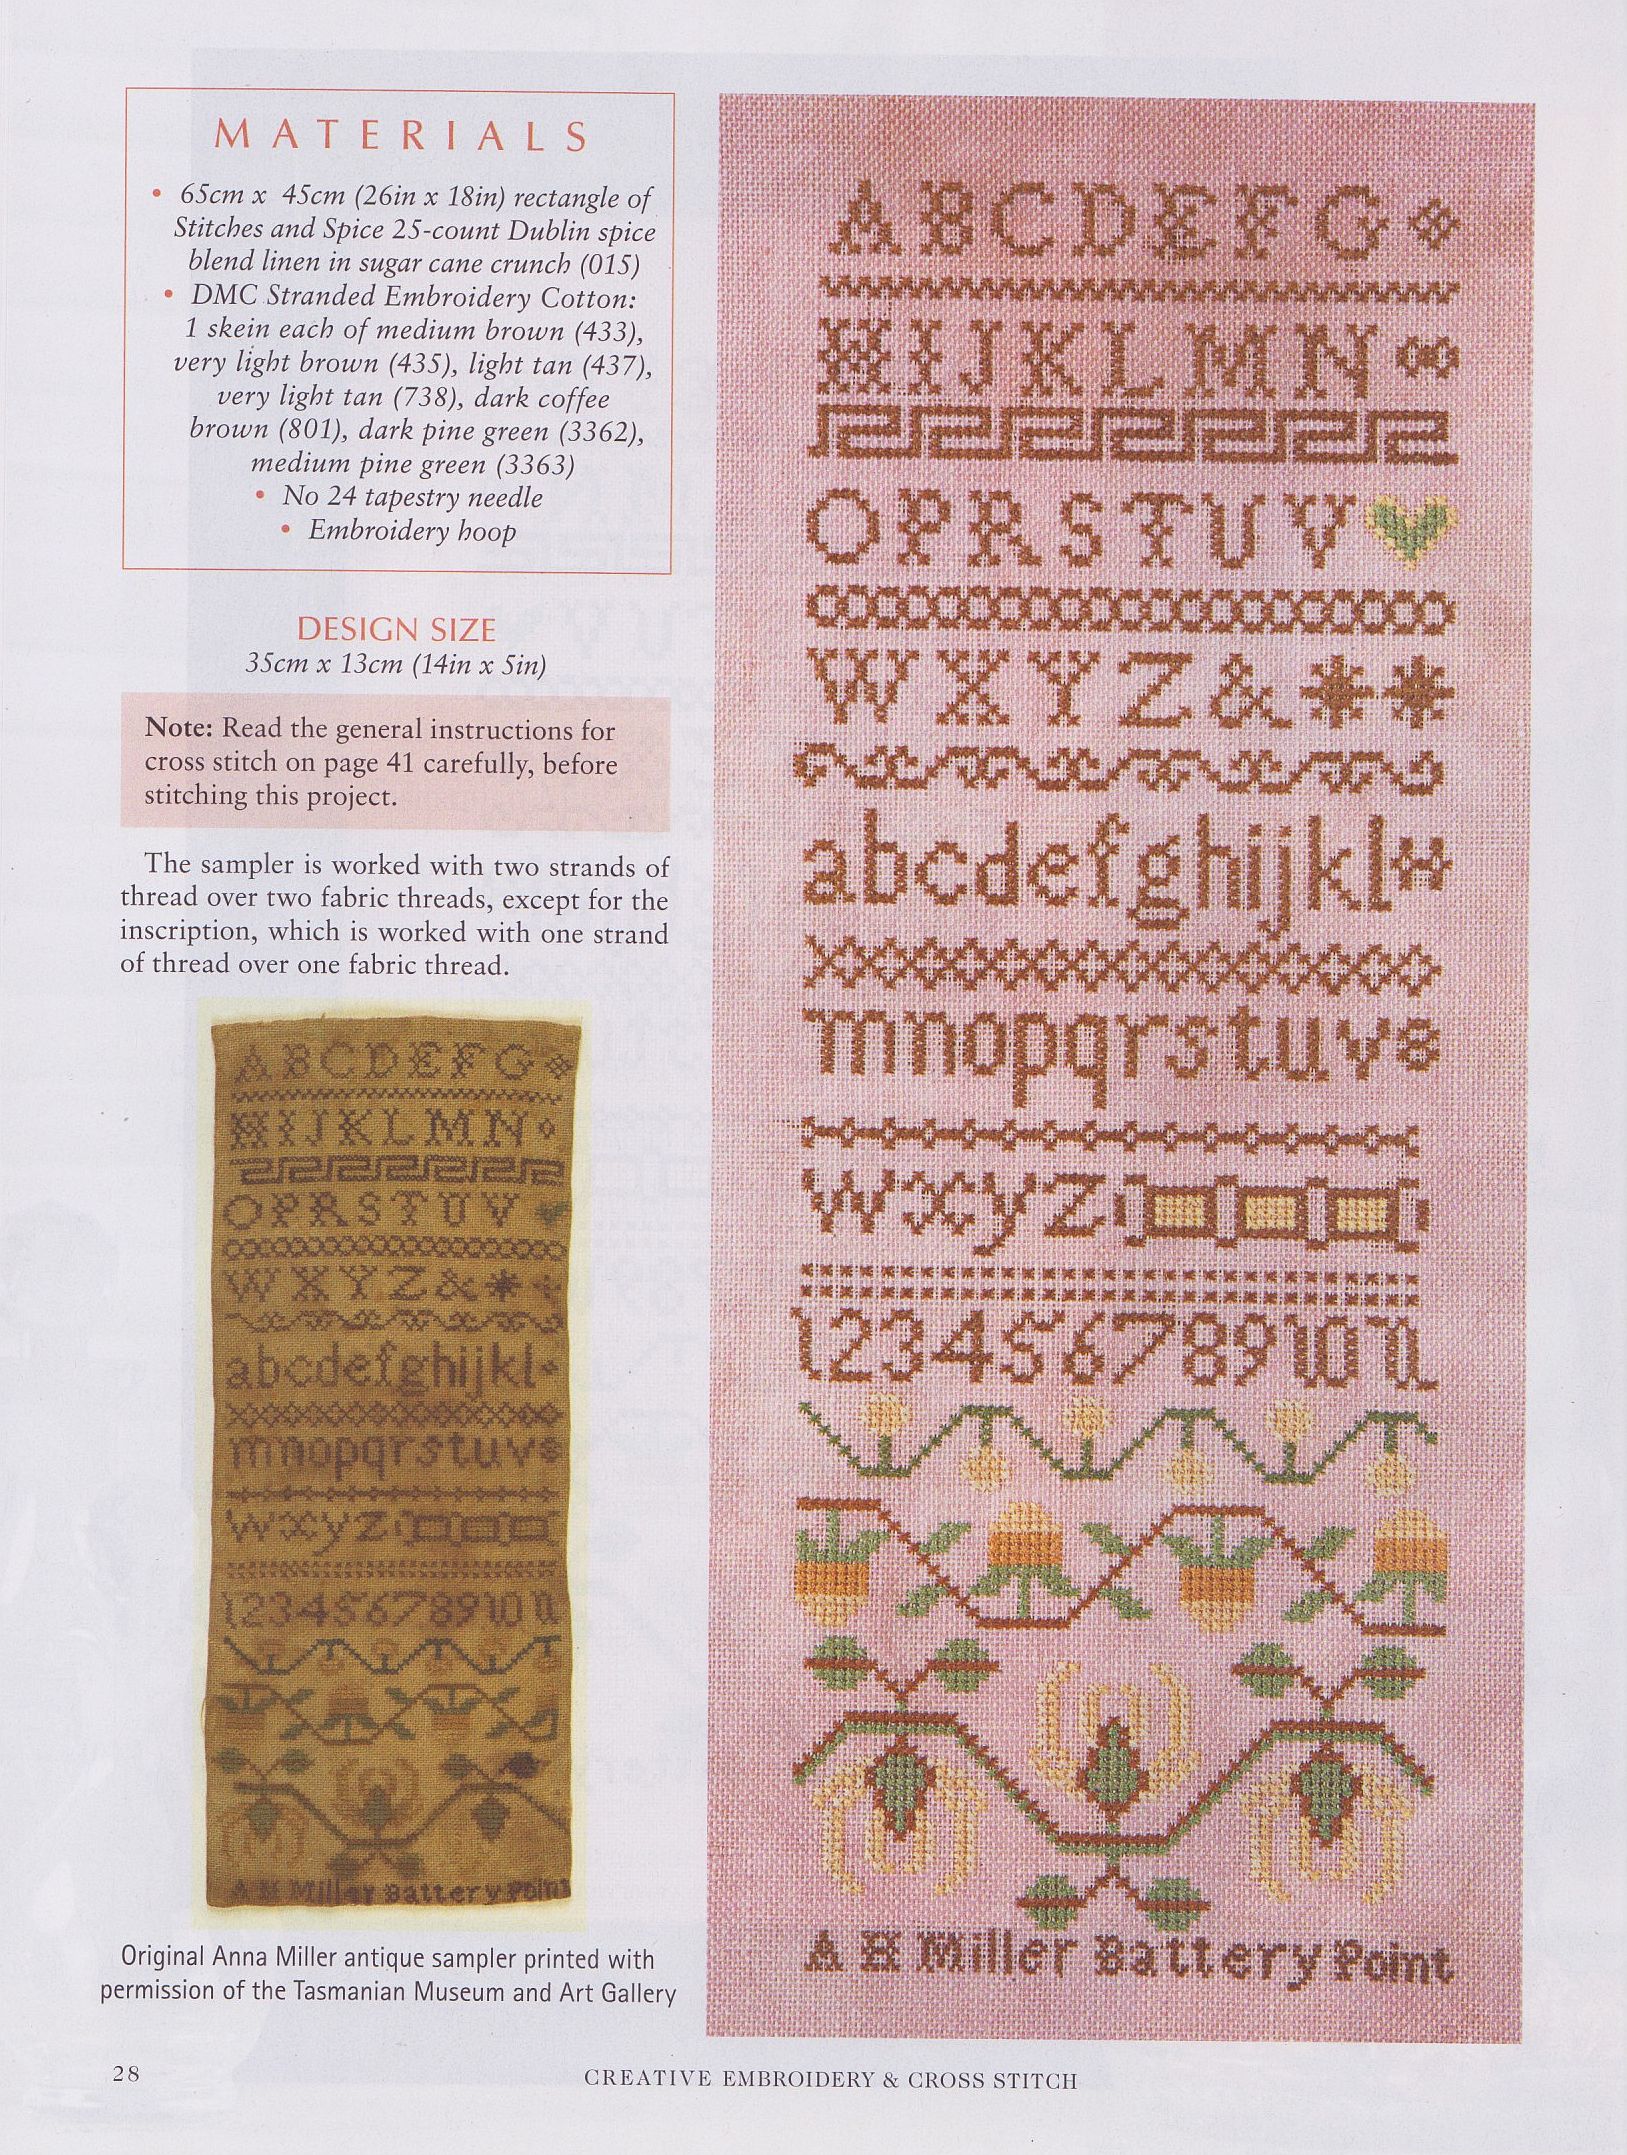 MATERIALS
• 65cm x 45cm (26in x 18in) rectangle of
Stitches and Spice 25-count Dublin spice
blend linen in sugar cane crunch (015)
• DMC Stranded Embroidery Cotton:
1 skein each of medium brown (433),
very light brown (435), light tan (437),
very light tan (738), dark coffee
brown (801), dark pine green (3362),
medium pine green (3363)
• No 24 tapestry needle
• Embroidery hoop
DESIGN SIZE
35cm x 13cm (14in x 5in)
Note: Read the general instructions for
cross stitch on page 41 carefully, before
stitching this project.
The sampler is worked with two strands of
thread over two fabric threads, except for the
inscription, which is worked with one strand
of thread over one fabric thread.
ABCDEFG
HIJKLMN
OPRSTUV
WXYZ&
abcdefghijkl
mnopqrstuvs
wxyz
12345678910 11
A H Miller Battery Point
Original Anna Miller antique sampler printed with
permission of the Tasmanian Museum and Art Gallery
ABCDEFG
HIJKLMN
OPRSTUV
WXYZ&
abcdefghijkl
mnopqrstuvs
wxyz
12345678910 11
A H Miller Battery Point
28
CREATIVE EMBROIDERY & CROSS STITCH